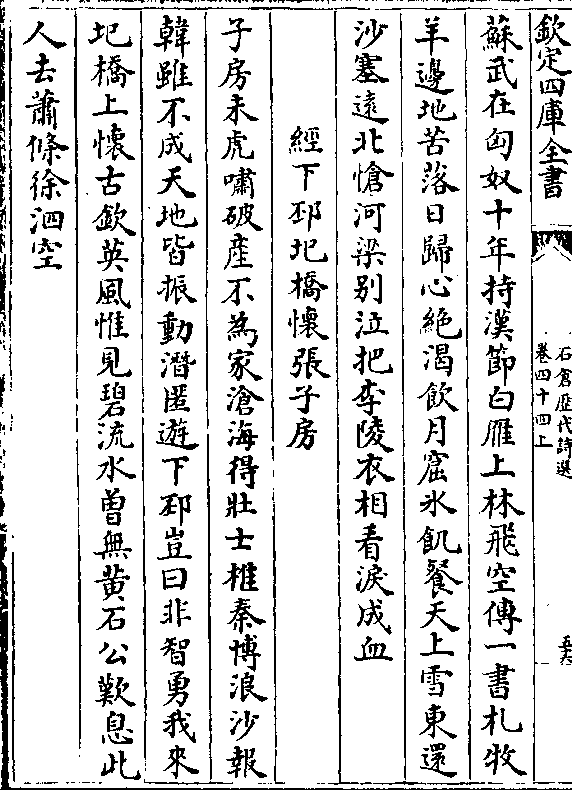 欽定四庫全書
石倉歴代詩選
卷四十四上
蘇武在匈奴十年持漢節白雁上林飛空傳一書札牧
羊邊地苦落日歸心絶渴飲月窟氷飢餐天上雪東還
沙塞遠北愴河梁别泣把李陵衣相看淚成血
經下邳圯橋懷張子房
子房未虎嘯破産不為家滄海得壯士椎秦博浪沙報
韓雖不成天地皆振動潛匿遊下邳豈曰非智勇我來
圯橋上懷古欽英風惟見碧流水曽無黄石公歎息此
人去蕭條徐泗空